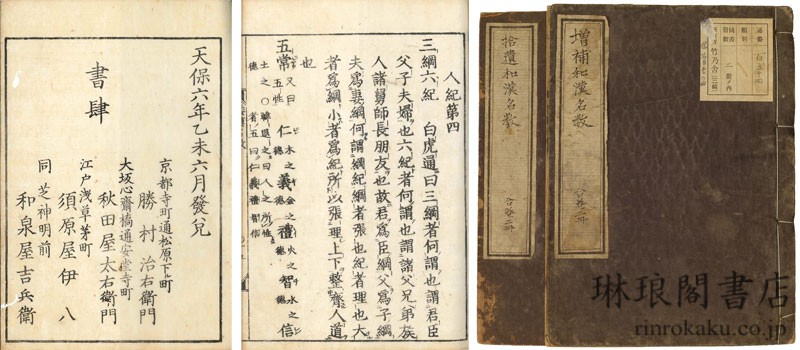 天保六年乙未六月發兌
書肆
京都寺町通松原下町
勝村治右衛門
大坂心齋橋通安堂寺町
秋田屋太右衛門
江户浅草茅町
須原屋伊八
同芝神明前
和泉屋吉兵衛
人紀第四
三綱六紀 白虎通曰三綱者何謂也謂君臣
父子夫婦也六紀者何謂也謂諸父兄弟族
人諸舅師長朋友也故君爲臣綱父爲子綱
夫爲妻綱何謂綱紀綱者張也紀者理也大
者爲綱小者爲紀所以張理上下整齊人道
也
五常 又曰五性 仁 義 禮 智 信
拾遺和漢名数
合巻二冊
增補和漢名数
合巻二冊
琳琅閣書店
rinrokaku.co.jp